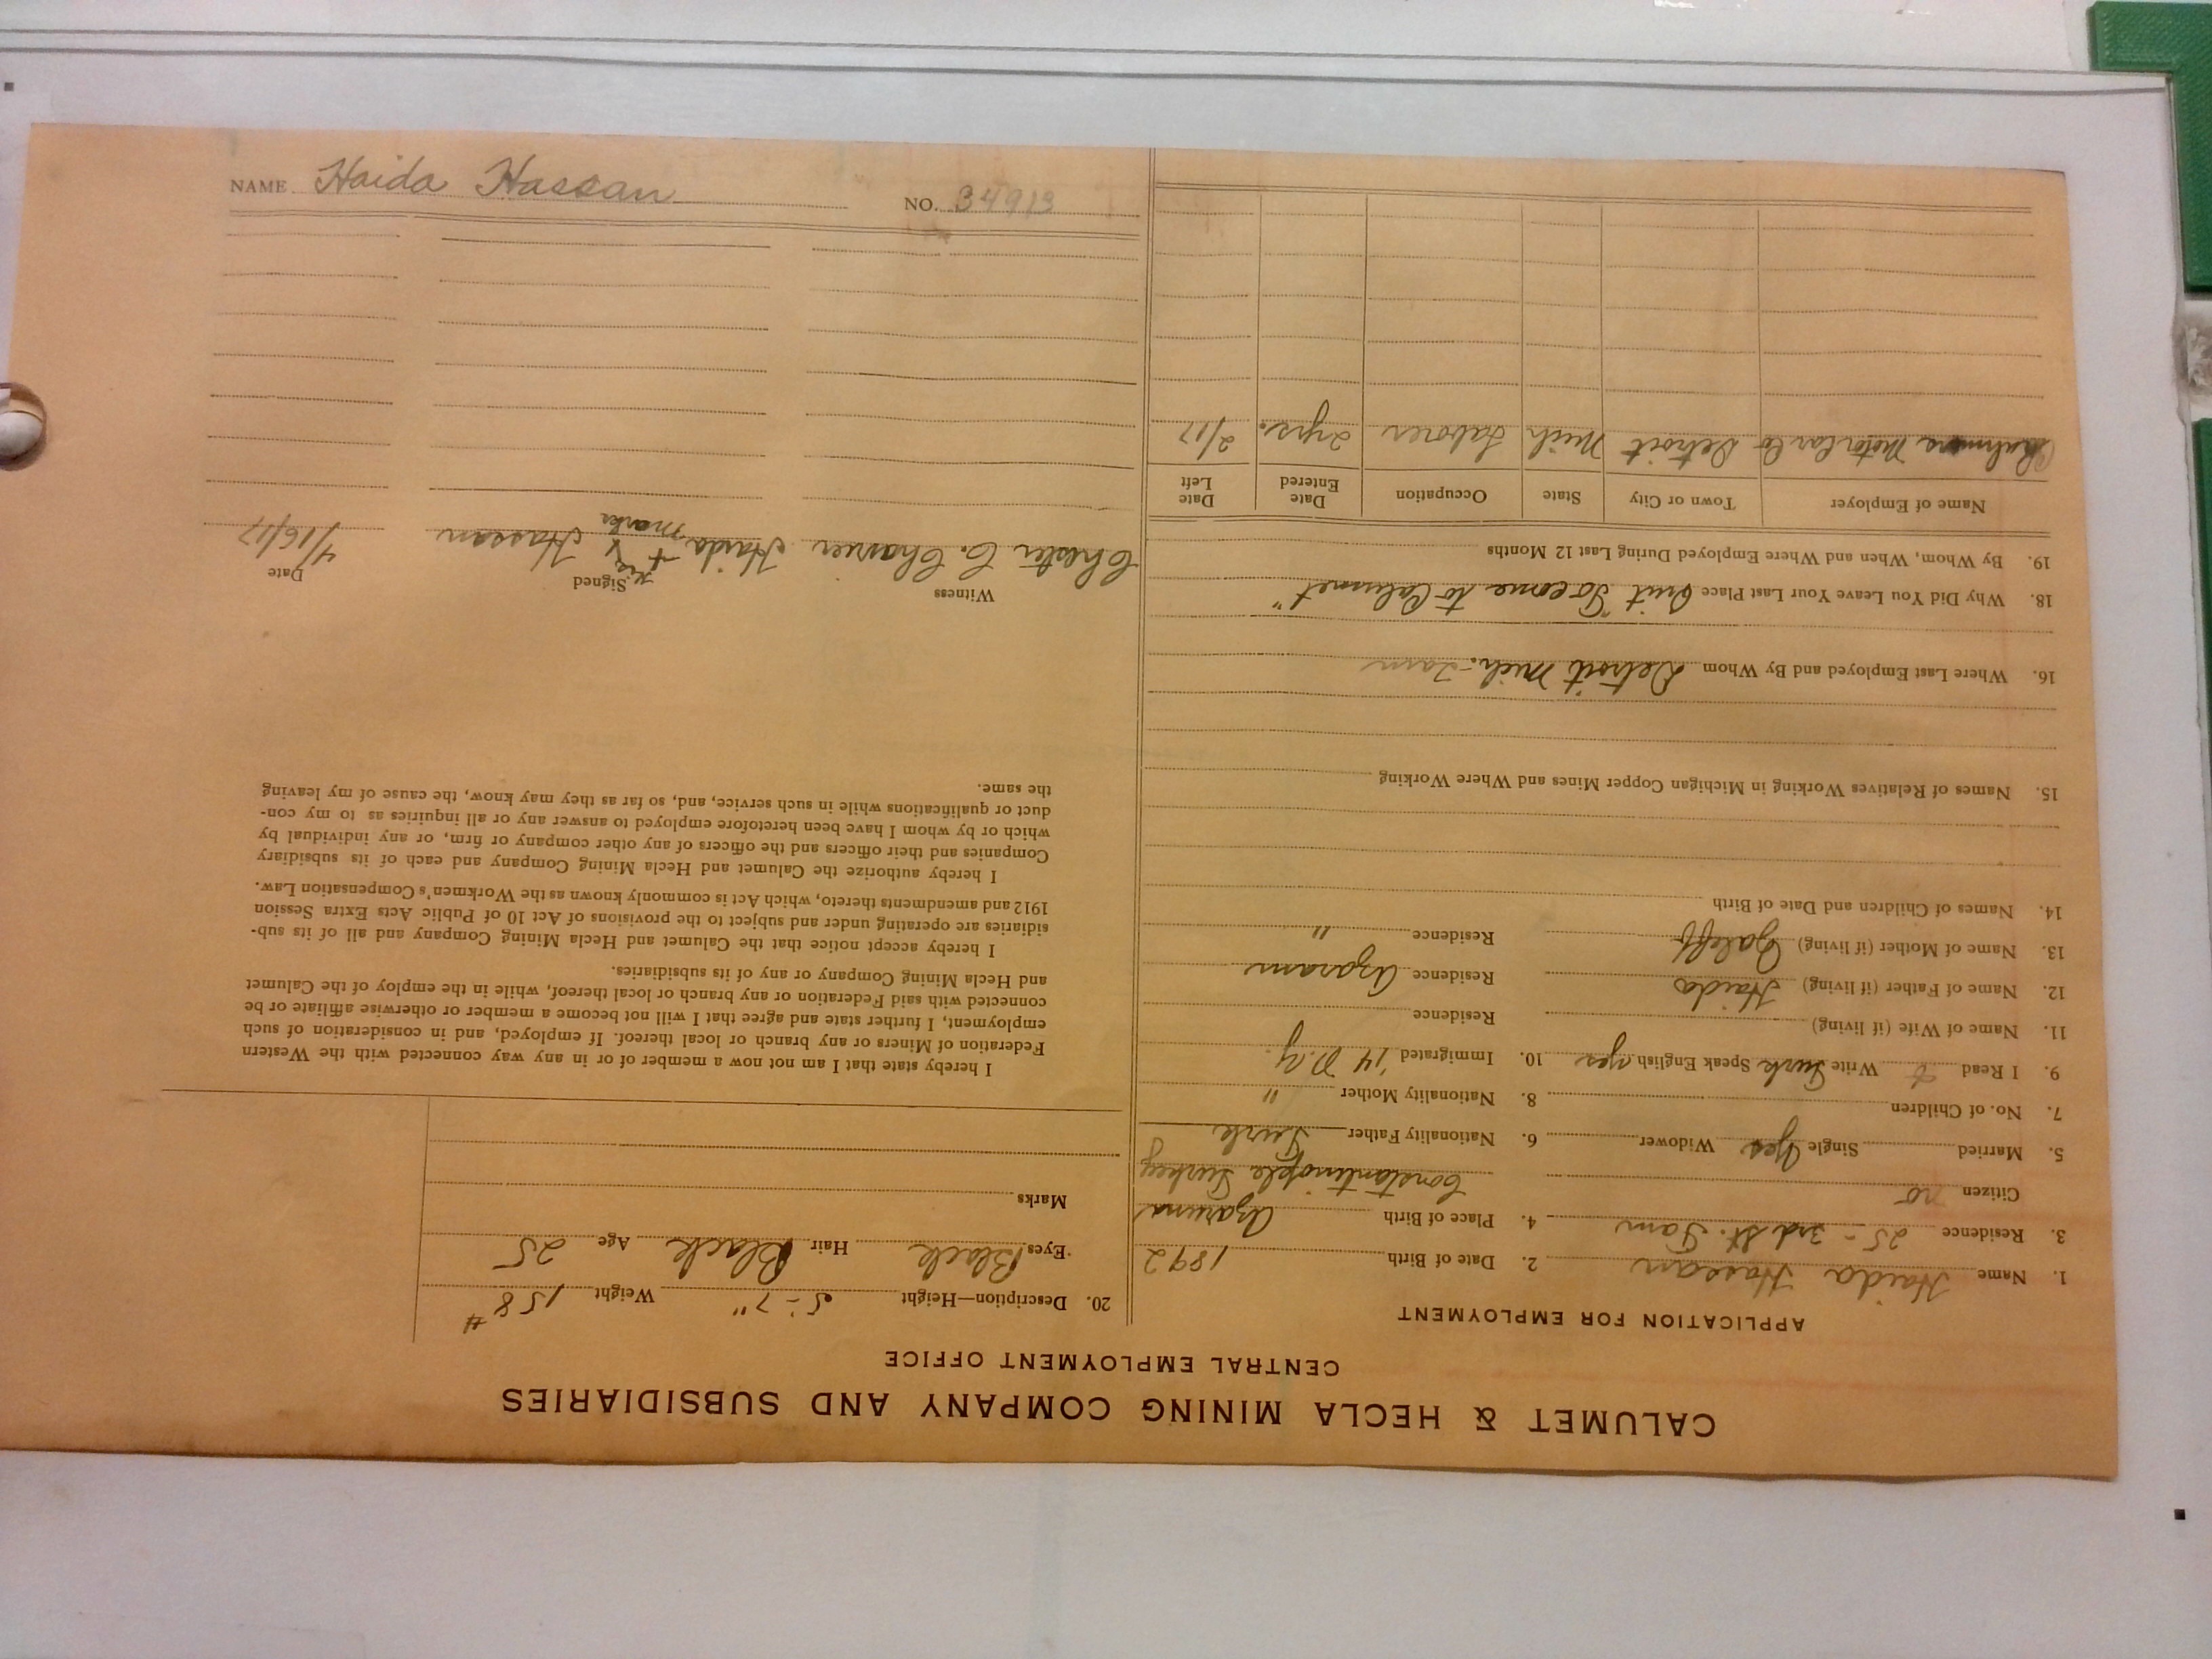 CALUMET & HECLA MINING COMPANY AND SUBSIDIARIES
CENTRAL EMPLOYMENT OFFICE
APPLICATION FOR EMPLOYMENT
1. Name Haida Hassan 2. Date of Birth 1892
3. Residence 25 - 3rd St. Tam 4. Place of Birth Azaruna
Citizen no Constantinople Turkey
5. Married Single Yes Widower 6. Nationality Father Turk
7. No. of Children 8. Nationality Mother "
9. I Read & Write Turk Speak English yes 10. Immigrated '14 N.Y.
11. Name of Wife (if living) Residence
12. Name of Father (if living) Haida Residence Azaram
13. Name of Mother (if living) Residence "
14. Names of Children and Date of Birth
15. Names of Relatives Working in Michigan Copper Mines and Where Working
16. Where Last Employed and By Whom Detroit Mich.
18. Why Did You Leave Your Last Place Quit "To come to Calumet"
19. By Whom, When and Where Employed During Last 12 Months
Name of Employer Town or City State Occupation Date Entered Date Left
Chalmers Motor Car Co Detroit Mich Laborer 2 yrs. 2/17
20. Description—Height 5'-7" Weight 158#
Eyes Black Hair Black Age 25
Marks
I hereby state that I am not now a member of or in any way connected with the Western
Federation of Miners or any branch or local thereof. If employed, and in consideration of such
employment, I further state and agree that I will not become a member or otherwise affiliate or be
connected with said Federation or any branch or local thereof, while in the employ of the Calumet
and Hecla Mining Company or any of its subsidiaries.
I hereby accept notice that the Calumet and Hecla Mining Company and all of its sub-
sidiaries are operating under and subject to the provisions of Act 10 of Public Acts Extra Session
1912 and amendments thereto, which Act is commonly known as the Workmen's Compensation Law.
I hereby authorize the Calumet and Hecla Mining Company and each of its subsidiary
Companies and their officers and the officers of any other company or firm, or any individual by
which or by whom I have been heretofore employed to answer any or all inquiries as to my con-
duct or qualifications while in such service, and, so far as they may know, the cause of my leaving
the same.
Witness Signed Date
Chester C. Haida his + mark Hassan 4/16/17
NAME Haida Hassan NO. 34913